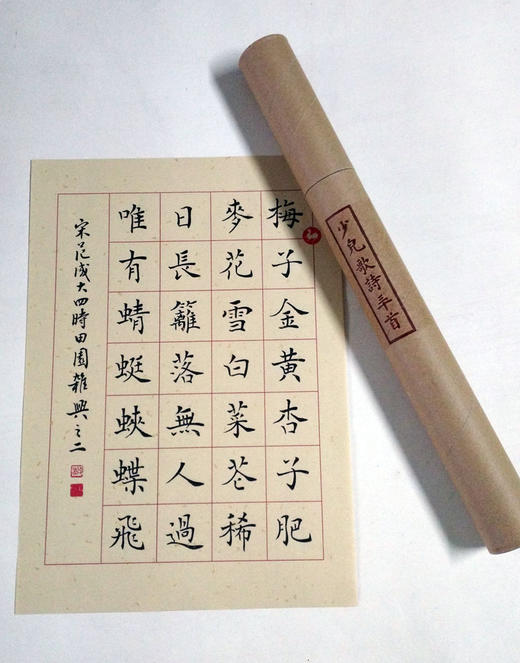 梅子金黃杏子肥
麥花雪白菜花稀
日長籬落無人過
唯有蜻蜓蛺蝶飛
宋范成大四時田園雜興之二
少兒歌詩首